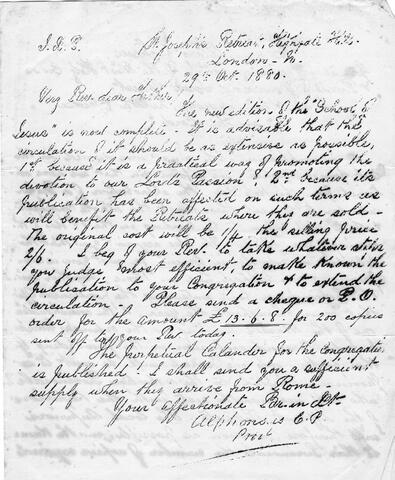 J. X. P. St Joseph's Retreat, Highgate Hill
London - N.
29th Oct. 1880.
Very Revd dear Father,
The new edition of the "School of
Jesus" is now complete - It is advisable that the
circulation of it should be as extensive as possible,
1st because it is a practical way of promoting the
devotion to our Lord's Passion; 2nd because its
publication has been effected on such terms as
will benefit the Retreats where they are sold -
The original cost will be 1/4 the selling price
2/6. I beg of your Revd. to take whatever steps
you judge most efficient, to make known the
Publication to your Congregation & to extend the
circulation - Please send a cheque or P.O.
order for the amount £13-6.8. for 200 copies
sent off to your Revd today.
The Perpetual Calander for the Congregation
is published! I shall send you a sufficient
supply when they arrive from Rome -
Your affectionate Br. in Xt.
Alphonsus C.P.
Provl